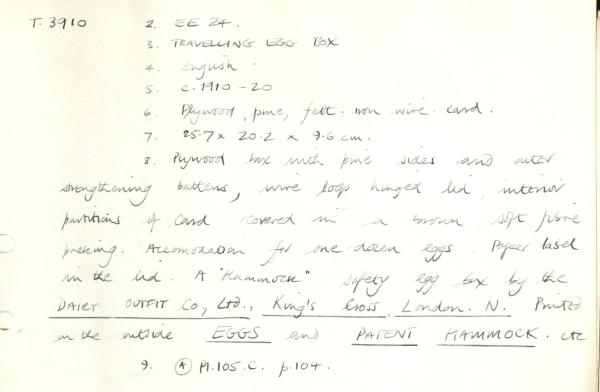 T. 3910 2. EE 24.
3. TRAVELLING EGG BOX
4. English.
5. c. 1910 - 20
6. Plywood, pine, felt. iron wire. card.
7. 25.7 x 20.2 x 9.6 cm.
8. Plywood box with pine sides and outer
strengthening battens, wire loop hinged lid, interior
partitions of card covered in a brown soft fibre
packing. Accomodation for one dozen eggs. Paper label
in the lid. A "Hammock" safety egg box by the
DAIRY OUTFIT Co, Ltd., King's Cross, London. N. Printed
on the outside EGGS and PATENT HAMMOCK. etc
9. (A) Pl. 105. C. p. 104.